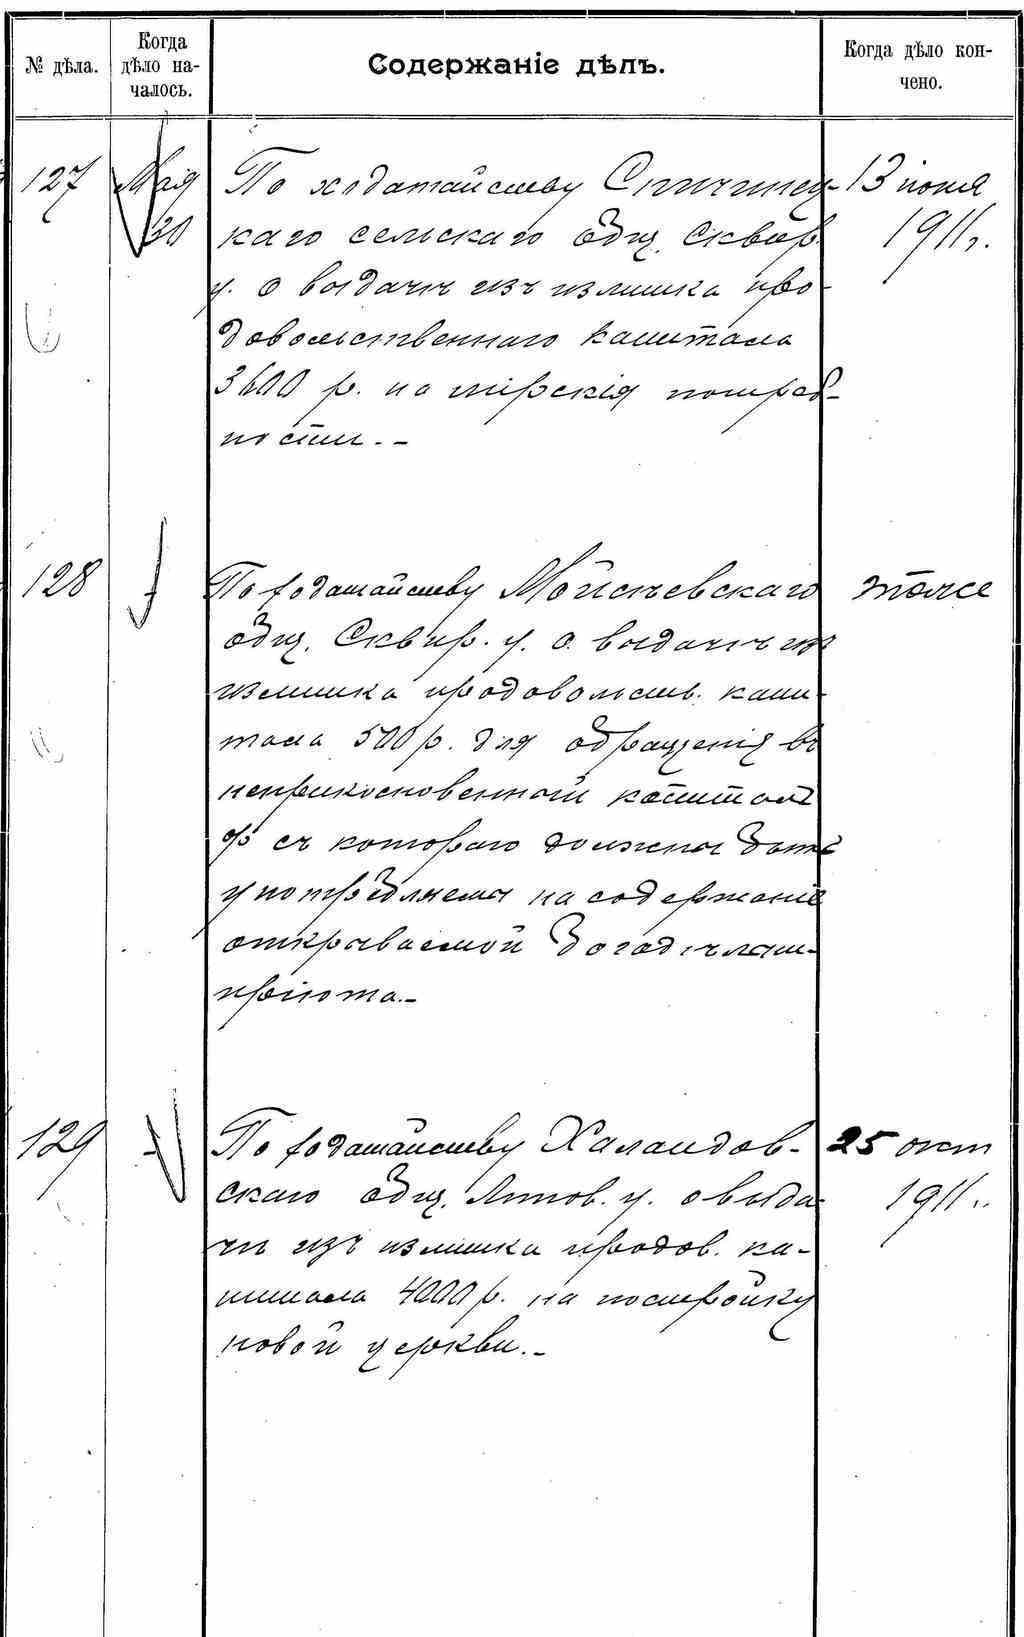 № дѣла.
Когда дѣло началось.
Содержаніе дѣлъ.
Когда дѣло кончено.
127 Мая По ходатайству Спичинец- 13 іюня
30 каго сельскаго общ. Сквир. 1911 г.
у. о выдачѣ изъ излишка про-
довольственнаго капитала
3600 р. на мірскія потреб-
ности. -
128 По ходатайству Мойсѣевскаго тоже
общ. Сквир. у. о выдачѣ изъ
излишка продовольств. капи-
тала 500 р. для обращенія въ
неприкосновенный капиталъ
% съ котораго должны быть
употребляемы на содержаніе
открываемой богадѣльни-
пріюта. -
129 По ходатайству Халаидов- 25 окт
скаго общ. Липов. у. о выда- 1911 г.
чѣ изъ излишка продов. ка-
питала 4000 р. на постройку
новой церкви. -